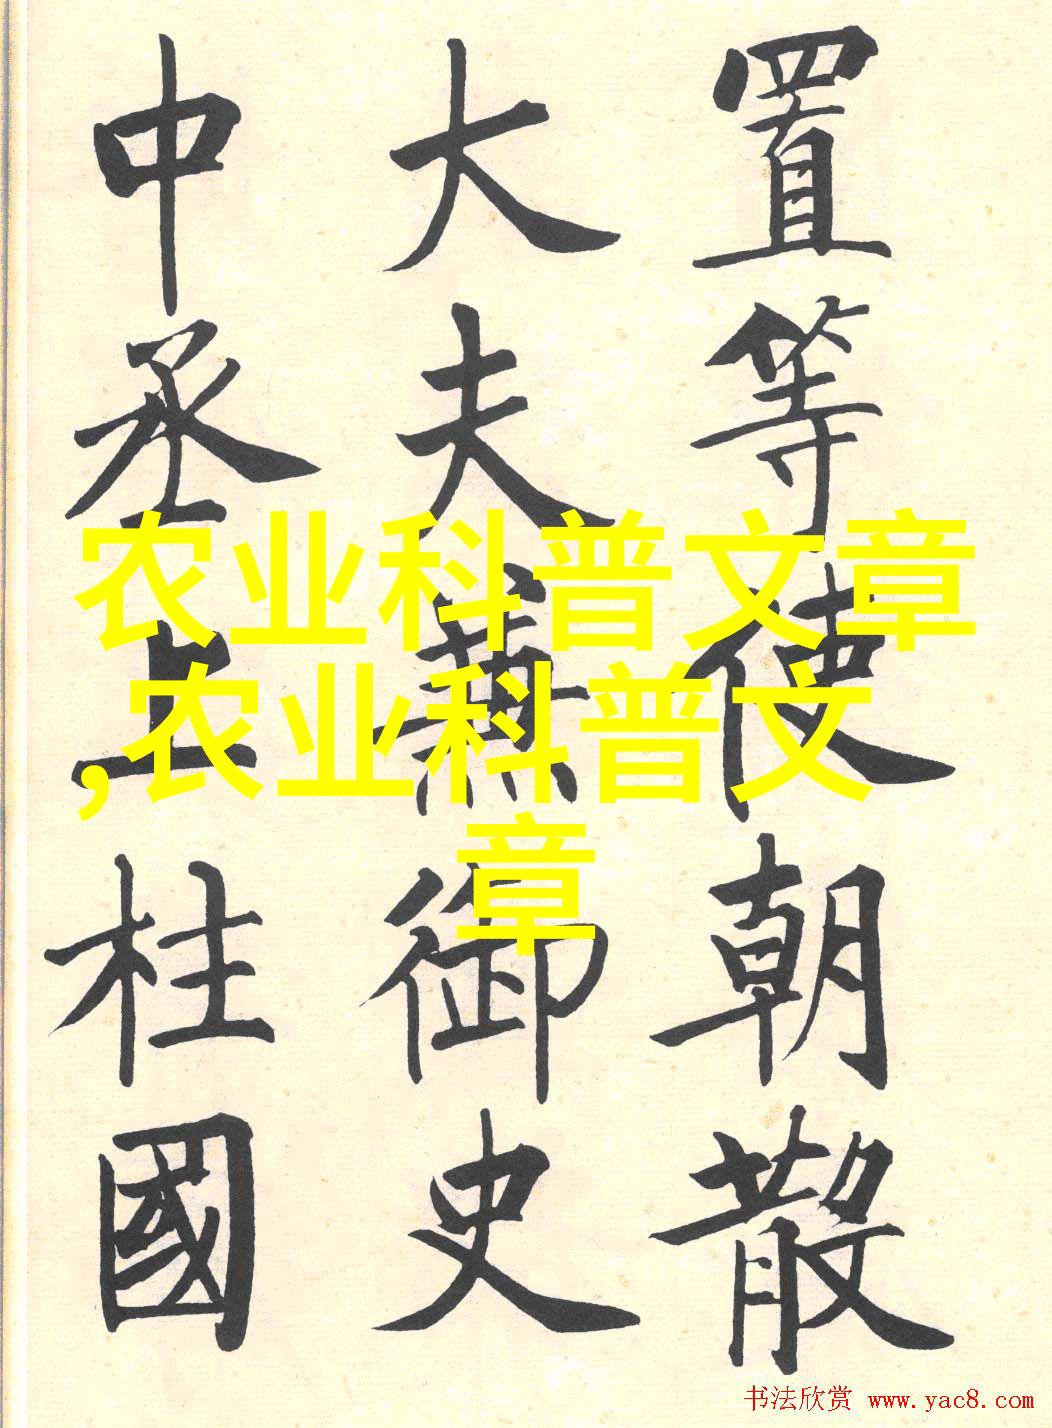 置等使朝散
大夫兼御史
中丞上柱國
农业科普文章
,农业科普文
章
书法欣赏 www.yac8.com